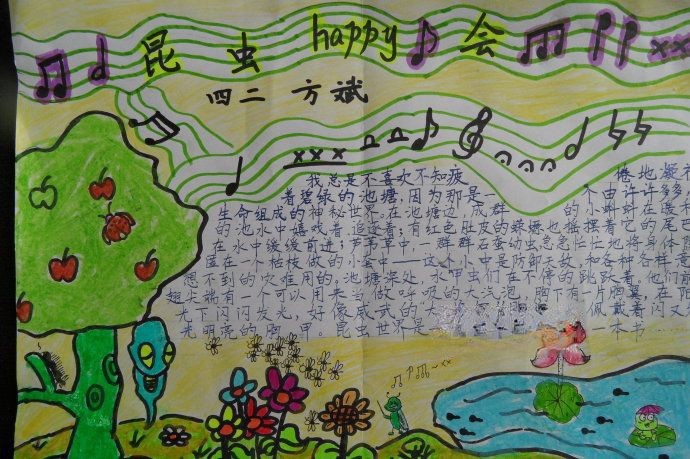 昆虫 happy 会
四二 方斌
我总是不喜欢不知疲 地凝
着碧绿的池塘,因为那是一 个由许许多多
生命组成的神秘世界。在池塘边,成群 的小蝌蚪在暖和
的池水中嬉戏着追逐着;有红色肚皮的蝾螈也摇摆着它的尾
在水中缓缓前进;芦苇草中,一群群石蚕幼虫急急忙忙地将身体
匿在一个枯枝做的小套中——这个小中是防御天敌和各种各样意
想不到的灾难用的;池塘深处,水甲虫们在不停的跳跃着,他们前
翅尖端有一个可以用来当做呼吸的大气泡,胸下有一片胸翼,在阳
光下闪闪发光,好像威武的大 佩戴着闪
光明亮的胸甲。昆虫世界是一 一本书……